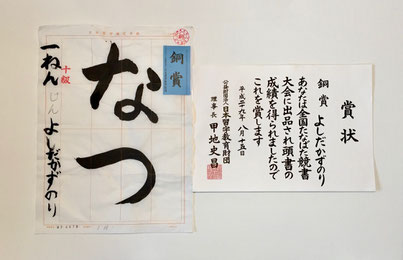 銅賞
なつ
十級
一ねん
じん
よしだかずのり
賞状
銅賞 よしだかずのり
あなたは全国たなばた競書
大会に出品され頭書の
成績を得られましたので
これを賞します
平成二十九年八月十五日
公益財団法人日本習字教育財団
理事長 甲地史昌